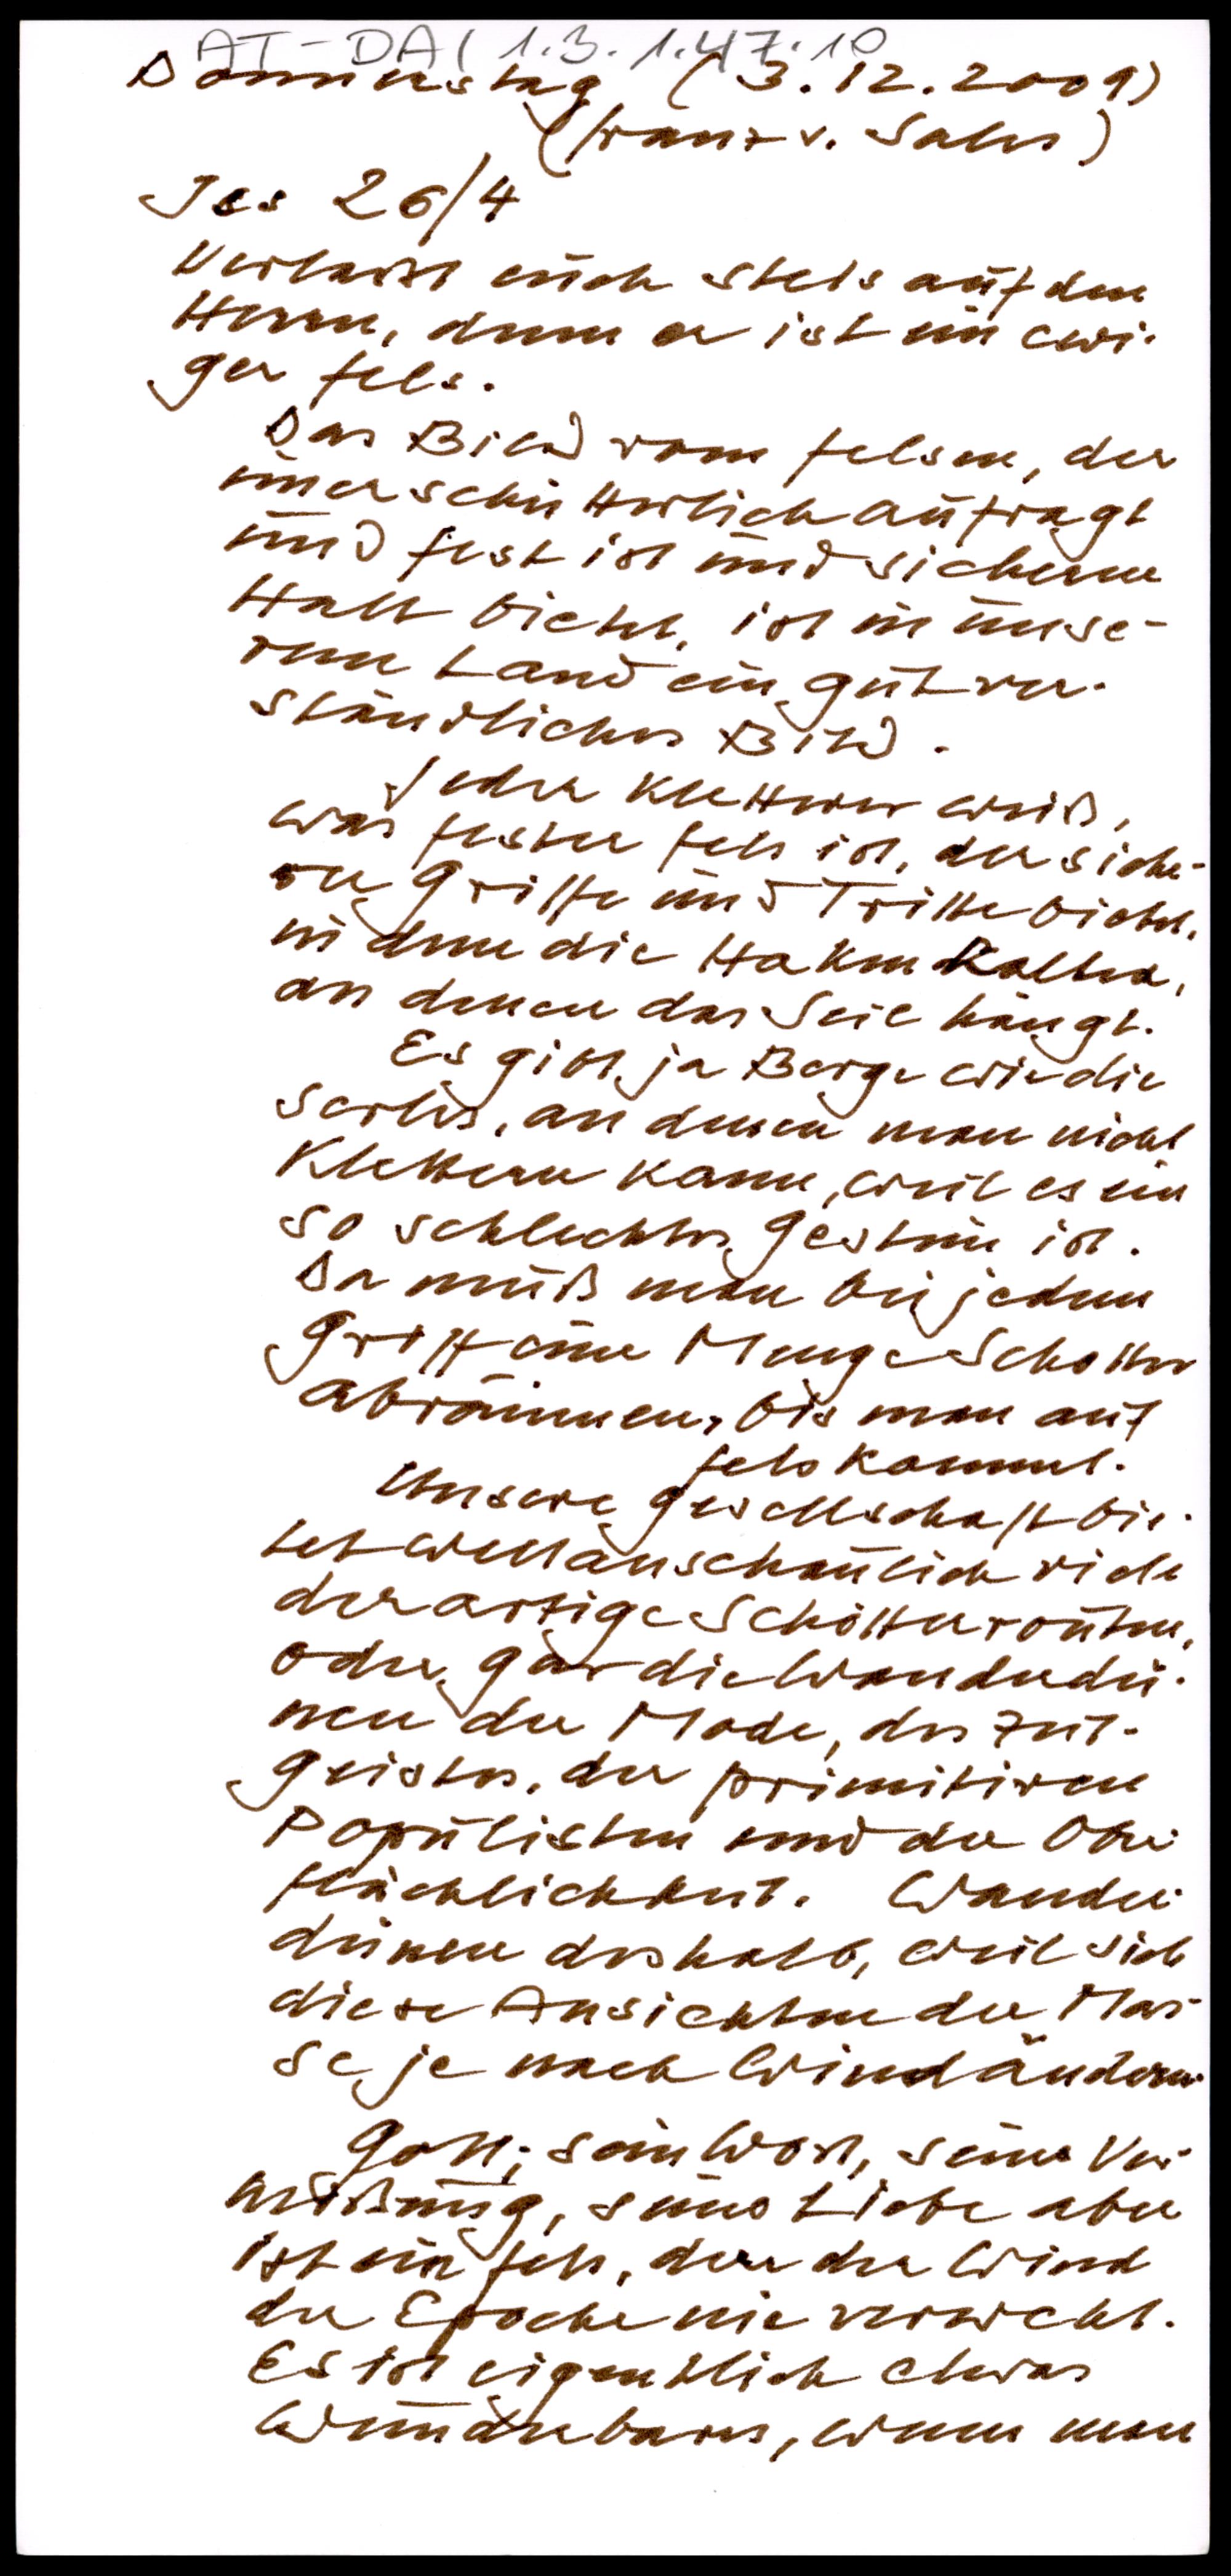 AT-DAI 1.3.1.47.10
Donnerstag (3.12.2009)
(Franz v. Sales)
Jes 26/4
Verlaßt euch stets auf den
Herrn, denn er ist ein ewi-
ger Fels.
Das Bild vom Felsen, der
unerschütterlich aufragt
und fest ist und sicheren
Halt bietet, ist in unse-
rem Land ein gut ver-
ständliches Bild.
Jeder Kletterer weiß,
was fester Fels ist, der siche-
re Griffe und Tritte bietet,
in dem die Haken halten,
an denen das Seil hängt.
Es gibt ja Berge wie die
Serles, an denen man nicht
klettern kann, weil es ein
so schlechtes Gestein ist.
Da muß man bei jedem
Griff eine Menge Schotter
abräumen, bis man auf
Fels kommt.
Unsere Gesellschaft bie-
tet weltanschaulich viele
derartige Schotterrouten,
oder gar die Wanderdü-
nen der Mode, des Zeit-
geistes, der primitiven
Populisten und der Ober-
flächlichkeit. Wander-
dünen deshalb, weil sich
diese Ansichten der Mas-
se je nach Wind ändern.
Gott, sein Wort, seine Ver-
heißung, seine Liebe aber
ist ein Fels, den der Wind
der Epoche nie verweht.
Es ist eigentlich etwas
Wunderbares, wenn man